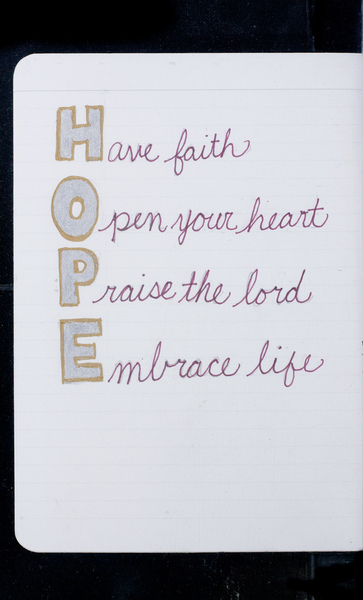 Have faith
Open your heart
Praise the lord
Embrace life